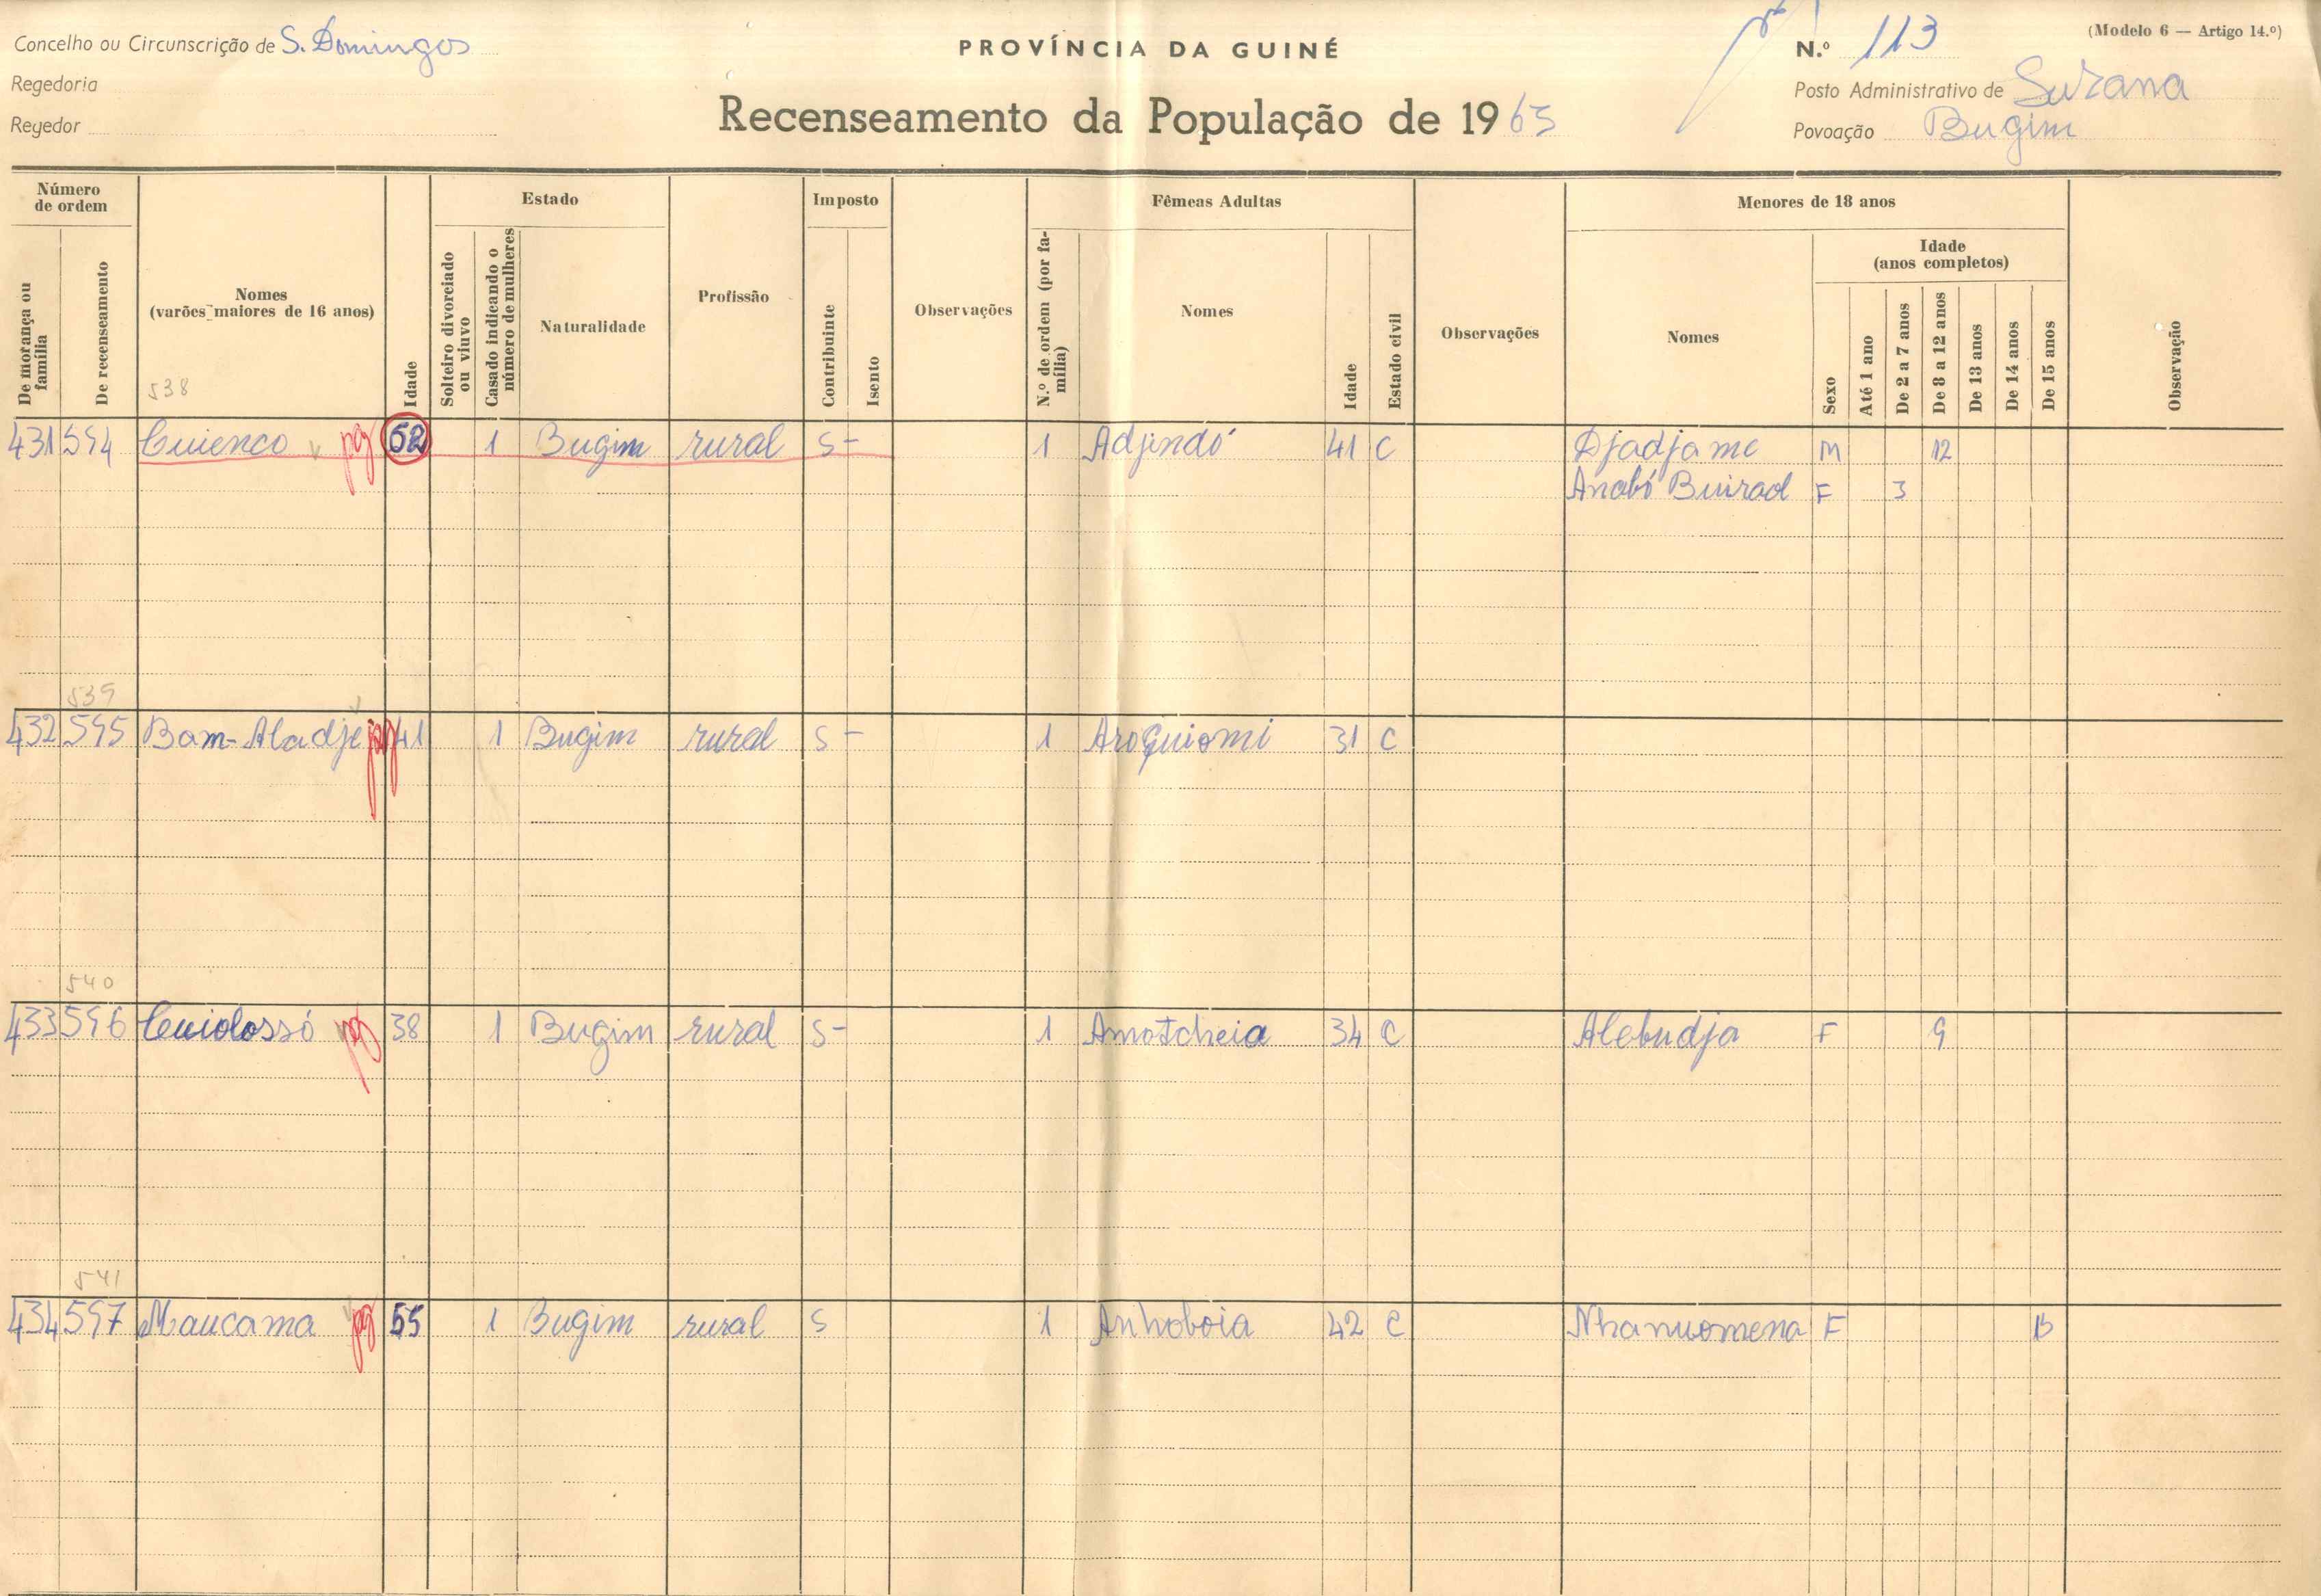 Concelho ou Circunscrição de S. Domingos
PROVÍNCIA DA GUINÉ
N.º 113
(Modelo 6 — Artigo 14.º)
Regedoria
Recenseamento da População de 1965
Posto Administrativo de Suzana
Regedor
Povoação Bugim
Número de ordem
De morança ou família
De recenseamento
Nomes (varões maiores de 16 anos)
Idade
Estado
Solteiro divorciado ou viuvo
Casado indicando o número de mulheres
Naturalidade
Profissão
Imposto
Contribuinte
Isento
Observações
Fêmeas Adultas
N.º de ordem (por família)
Nomes
Idade
Estado civil
Observações
Menores de 18 anos
Nomes
Sexo
Idade (anos completos)
Até 1 ano
De 2 a 7 anos
De 8 a 12 anos
De 13 anos
De 14 anos
De 15 anos
Observação
538
431 594 Cuienco pg 52 1 Bugim rural S- 1 Adjindó 41 C Djadjame M 12
Anabó Buirad F 3
539
432 595 Bam-Aladje pg 41 1 Bugim rural S- 1 Aroguiomi 31 C
540
433 596 Cuiolossó pg 38 1 Bugim rural S- 1 Amotcheia 34 C Alebudja F 9
541
434 597 Maucama pg 55 1 Bugim rural S 1 Anhoboia 42 C Nhanuomena F 15